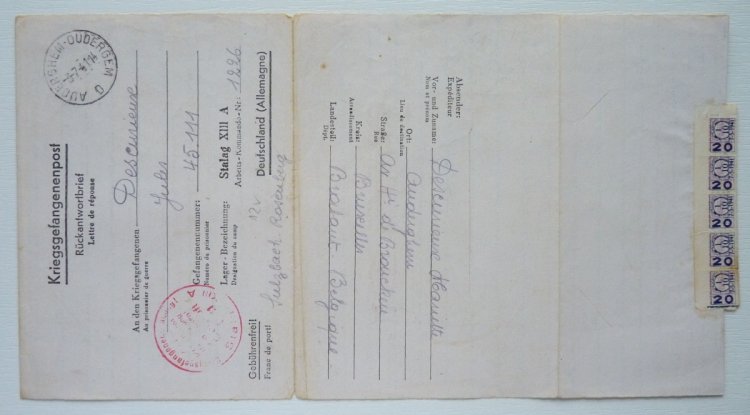 AUDERGHEM-OUDERGEM
Kriegsgefangenenpost
Rückantwortbrief
Lettre de réponse
An den Kriegsgefangenen
Au prisonnier de guerre
Jules
Gefangenennummer: 45.111
Numéro du prisonnier
Lager-Bezeichnung: Stalag XIII A
Désignation du camp
Arbeits-Kommando-Nr. 1226
Gebührenfrei! Deutschland (Allemagne)
Franc de port!
Sulzbach Rosenberg
Absender:
Expéditeur
Vor- und Zuname:
Nom et prénom
Ort: Auderghem
Lieu de destination
Straße:
Rue
Kreis: Bruxelles
Arrondissement
Landesteil: Brabant Belgique
Dépt.
20
20
20
20
20